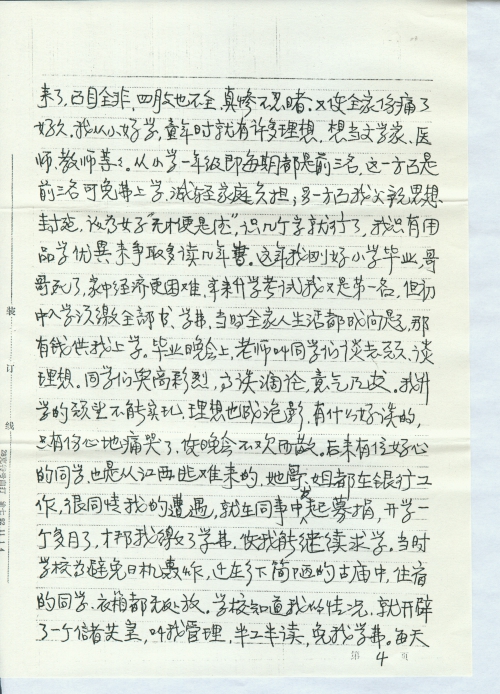 来了,面目全非,四肢也不全,真惨不忍睹。又使全家伤痛了
好久。我从小好学,童年时就有许多理想,想当文学家、医
师、教师等等。从小学一年级即每期都是前三名,这一方面是
前三名可免费上学,减轻家庭负担;另一方面我父亲思想
封建,认为女子“无才便是德”,识几个字就行了,我只有用
品学优异来争取多读几年书。这年我刚好小学毕业,哥
哥死了,家中经济更困难,本来升学考试我又是第一名,但初
中入学须缴全部书、学费,当时全家人生活都成问题,那
有钱供我上学。毕业晚会上,老师叫同学们谈志愿、谈
理想。同学们兴高彩烈,高谈阔论,意气风发。我升
学的愿望不能实现,理想也成泡影,有什么好谈的,
只有伤心地痛哭了,使晚会不欢而散。后来有位好心
的同学,也是从江西逃难来的,她哥、姐都在银行工
作,很同情我的遭遇,就在同事中发起募捐,开学一
个多月了,才帮我缴了学费,使我能继续求学。当时
学校为避免日机轰炸,迁在乡下简陋的古庙中,住宿
的同学,衣箱都无处放。学校知道我的情况,就开辟
了一个储存室,叫我管理,半工半读,免我学费。每天
第 4 页
装
订
线